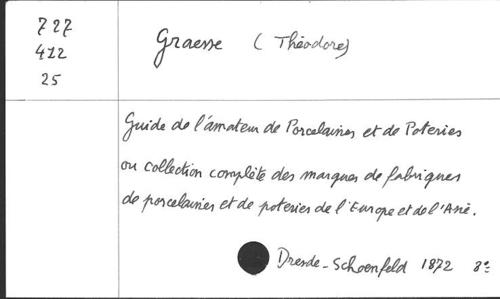 727
412
25
Graesse (Théodore)
Guide de l'amateur de Porcelaines et de Poteries
ou collection complète des marques de fabriques
de porcelaines et de poteries de l'Europe et de l'Asie.
Dresde - Schoenfeld 1872 8°